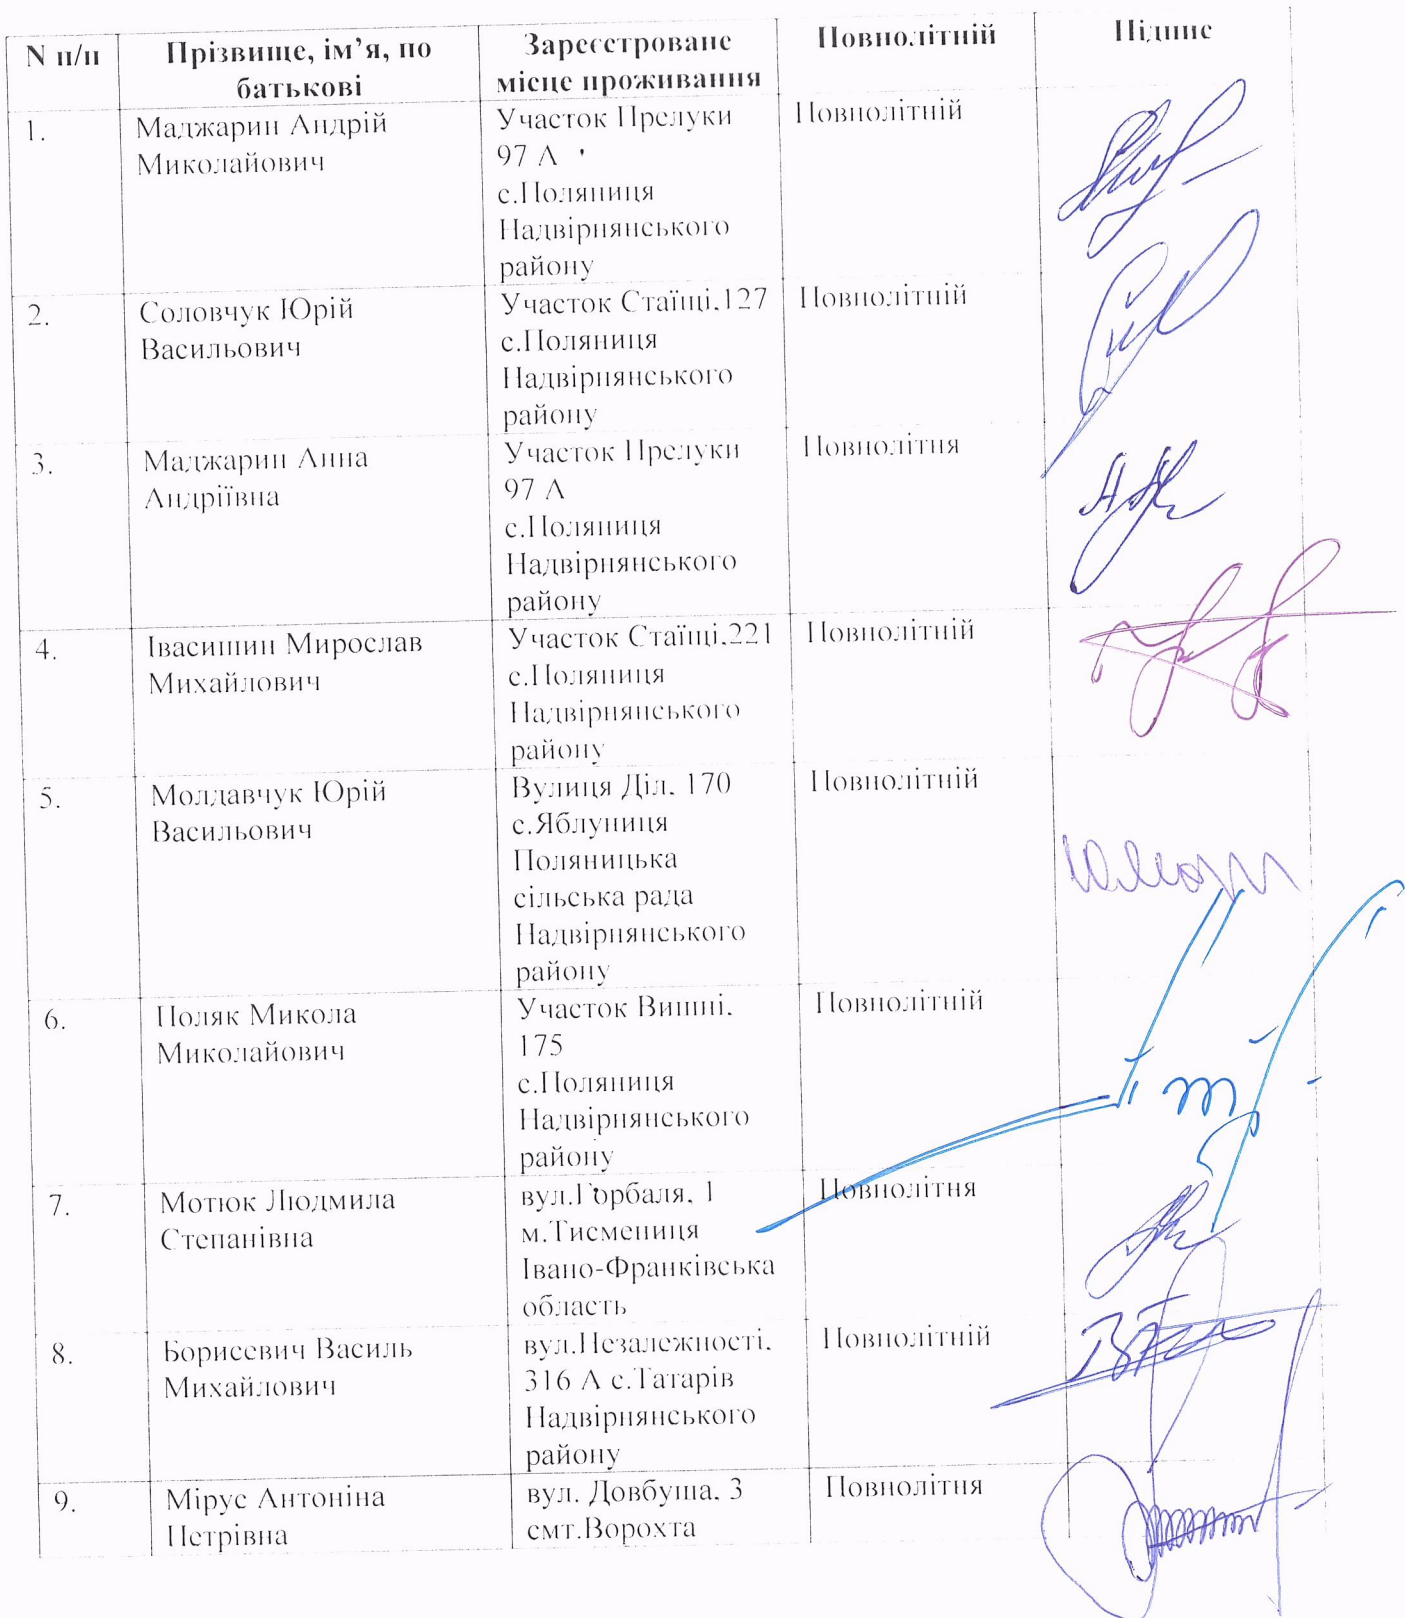 N п/п
Прізвище, ім’я, по
батькові
Зареєстроване
місце проживання
Повнолітній
Підпис
1.
Маджарин Андрій
Миколайович
Участок Прелуки
97 А
с.Поляниця
Надвірнянського
району
Повнолітній
2.
Соловчук Юрій
Васильович
Участок Стаїщі,127
с.Поляниця
Надвірнянського
району
Повнолітній
3.
Маджарин Анна
Андріївна
Участок Прелуки
97 А
с.Поляниця
Надвірнянського
району
Повнолітня
4.
Івасишин Мирослав
Михайлович
Участок Стаїщі,221
с.Поляниця
Надвірнянського
району
Повнолітній
5.
Молдавчук Юрій
Васильович
Вулиця Діл, 170
с.Яблуниця
Поляницька
сільська рада
Надвірнянського
району
Повнолітній
6.
Поляк Микола
Миколайович
Участок Вишні,
175
с.Поляниця
Надвірнянського
району
Повнолітній
7.
Мотюк Людмила
Степанівна
вул.Горбаля, 1
м.Тисмениця
Івано-Франківська
область
Повнолітня
8.
Борисевич Василь
Михайлович
вул.Незалежності,
316 А с.Татарів
Надвірнянського
району
Повнолітній
9.
Мірус Антоніна
Петрівна
вул. Довбуша, 3
смт.Ворохта
Повнолітня